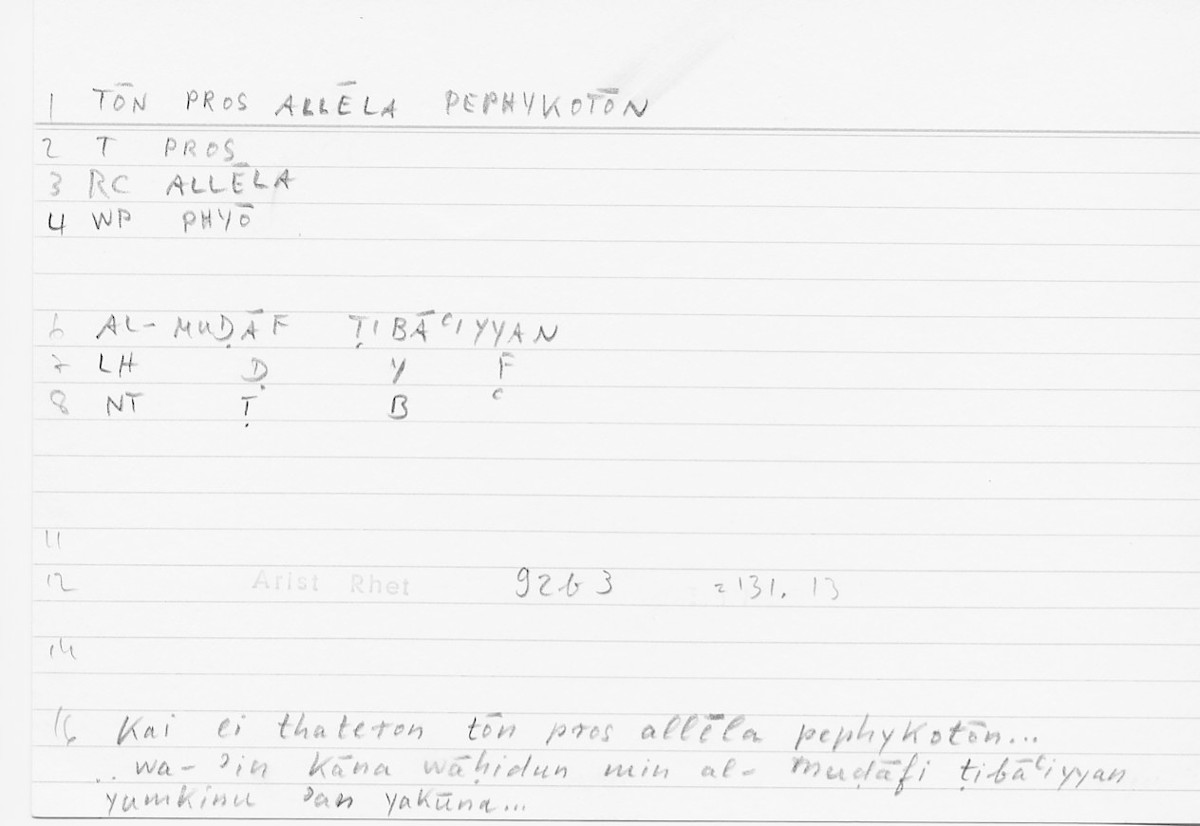 1 TŌN PROS ALLĒLA PEPHYKOTŌN
2 T PROS
3 RC ALLĒLA
4 WP PHYŌ
6 AL- MUḌĀF ṬIBĀʿIYYAN
7 LH Ḍ Y F
8 NT Ṭ B ʿ
11
12 Arist Rhet 92b3 =131.13
14
16 Kai ei thateron tōn pros allēla pephykotōn...
.. wa- ʾin kāna wāḥidun min al- muḍāfi ṭibāʿiyyan
yumkinu ʾan yakūna...